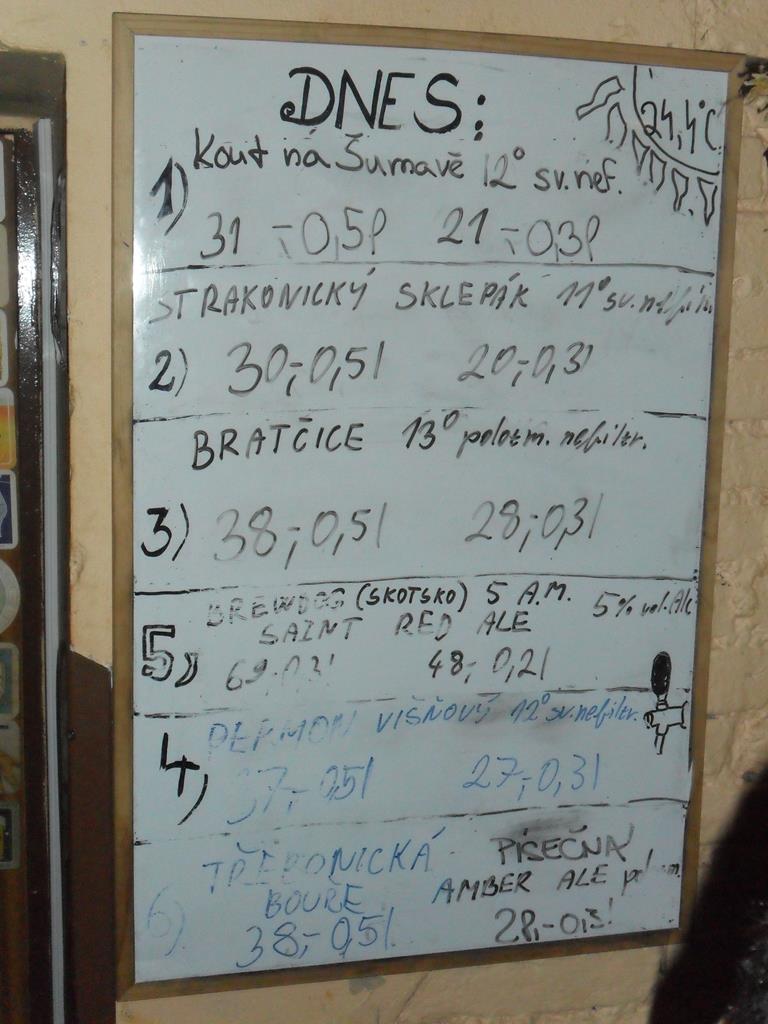 DNES:
24,4°C
1) Kout ná Šumavě 12° sv. nef.
31,-0,5l 21,-0,3l
STRAKONICKÝ SKLEPÁK 11° sv. nefiltr.
2) 30,-0,5l 20,-0,3l
BRATČICE 13° polotm. nefiltr.
3) 38,-0,5l 28,-0,3l
BREWDOG (SKOTSKO) 5 A.M. 5% vol. Alc
SAINT RED ALE
5) 69,-0,3l 48,- 0,2l
PERMON VIŠŇOVÝ 12° sv. nefiltr.
4) 37,-0,5l 27,-0,3l
TŘEBONICKÁ PÍSEČNÁ
6) BOUŘE AMBER ALE
38,-0,5l 28,-0,3l